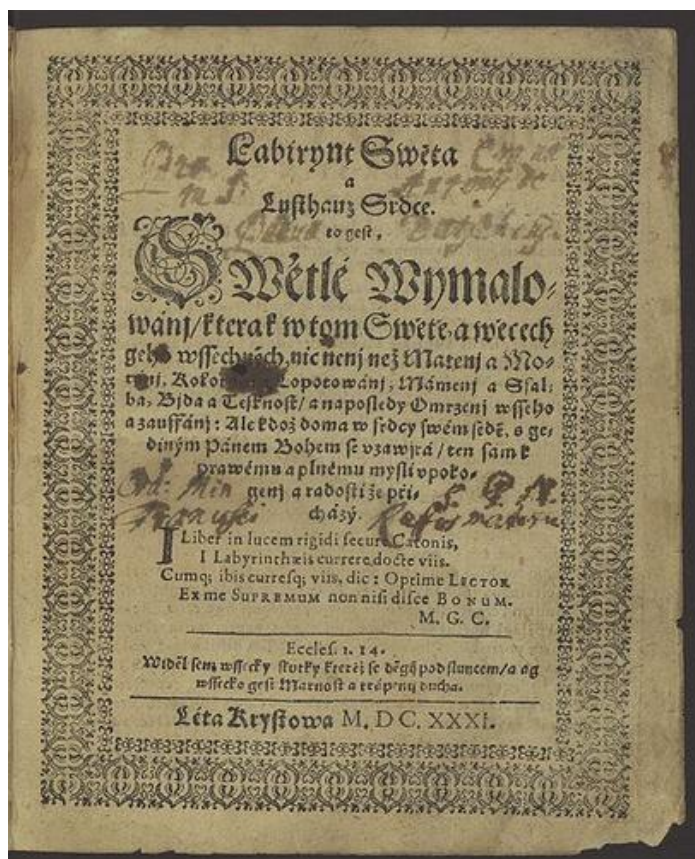 Labirynt Swěta
a
Lusthauz Srdce.
to gest,
SWětlé Wymalo-
wánj/ kterak w tom Swětě, a wěcech
geho wssechněch, nic nenj než Matenj a Mo-
tánj, Lopotowánj, Mámenj a Ssal-
ba, Bjda a Tesknost/ a naposledy Omrzenj wsseho
a zauffánj: Ale kdož doma w srdcy swém sedě, s ge-
diným Pánem Bohem se vzawjrá/ ten sam k
prawému a plnému mysli vpoko-
genj a radosti že při-
cházý.
I Liber in lucem rigidi secure Catonis,
I Labyrinthæis currere docte viis.
Cumq; ibis curresq; viis, dic: Optime LECTOR
Ex me SUPREMUM non nisi disce BONUM.
M. G. C.
Eccles. 1. 14.
Widěl sem wssecky skutky kteřéž se děgj pod sluncem/ a ag
wssecko gest Marnost a trápenj ducha.
Léta Krystowa M. DC. XXXI.